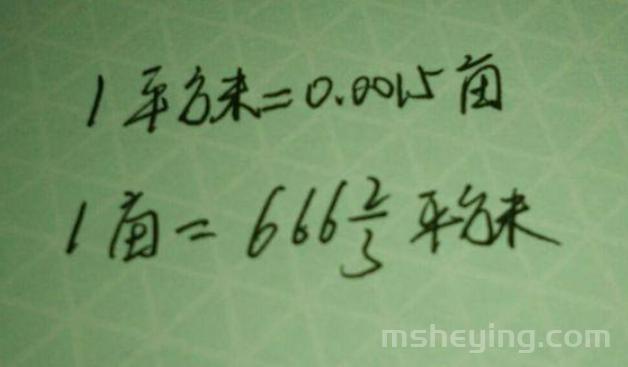 1平方米=0.0015亩
1亩=666 2/3 平方米
msheying.com